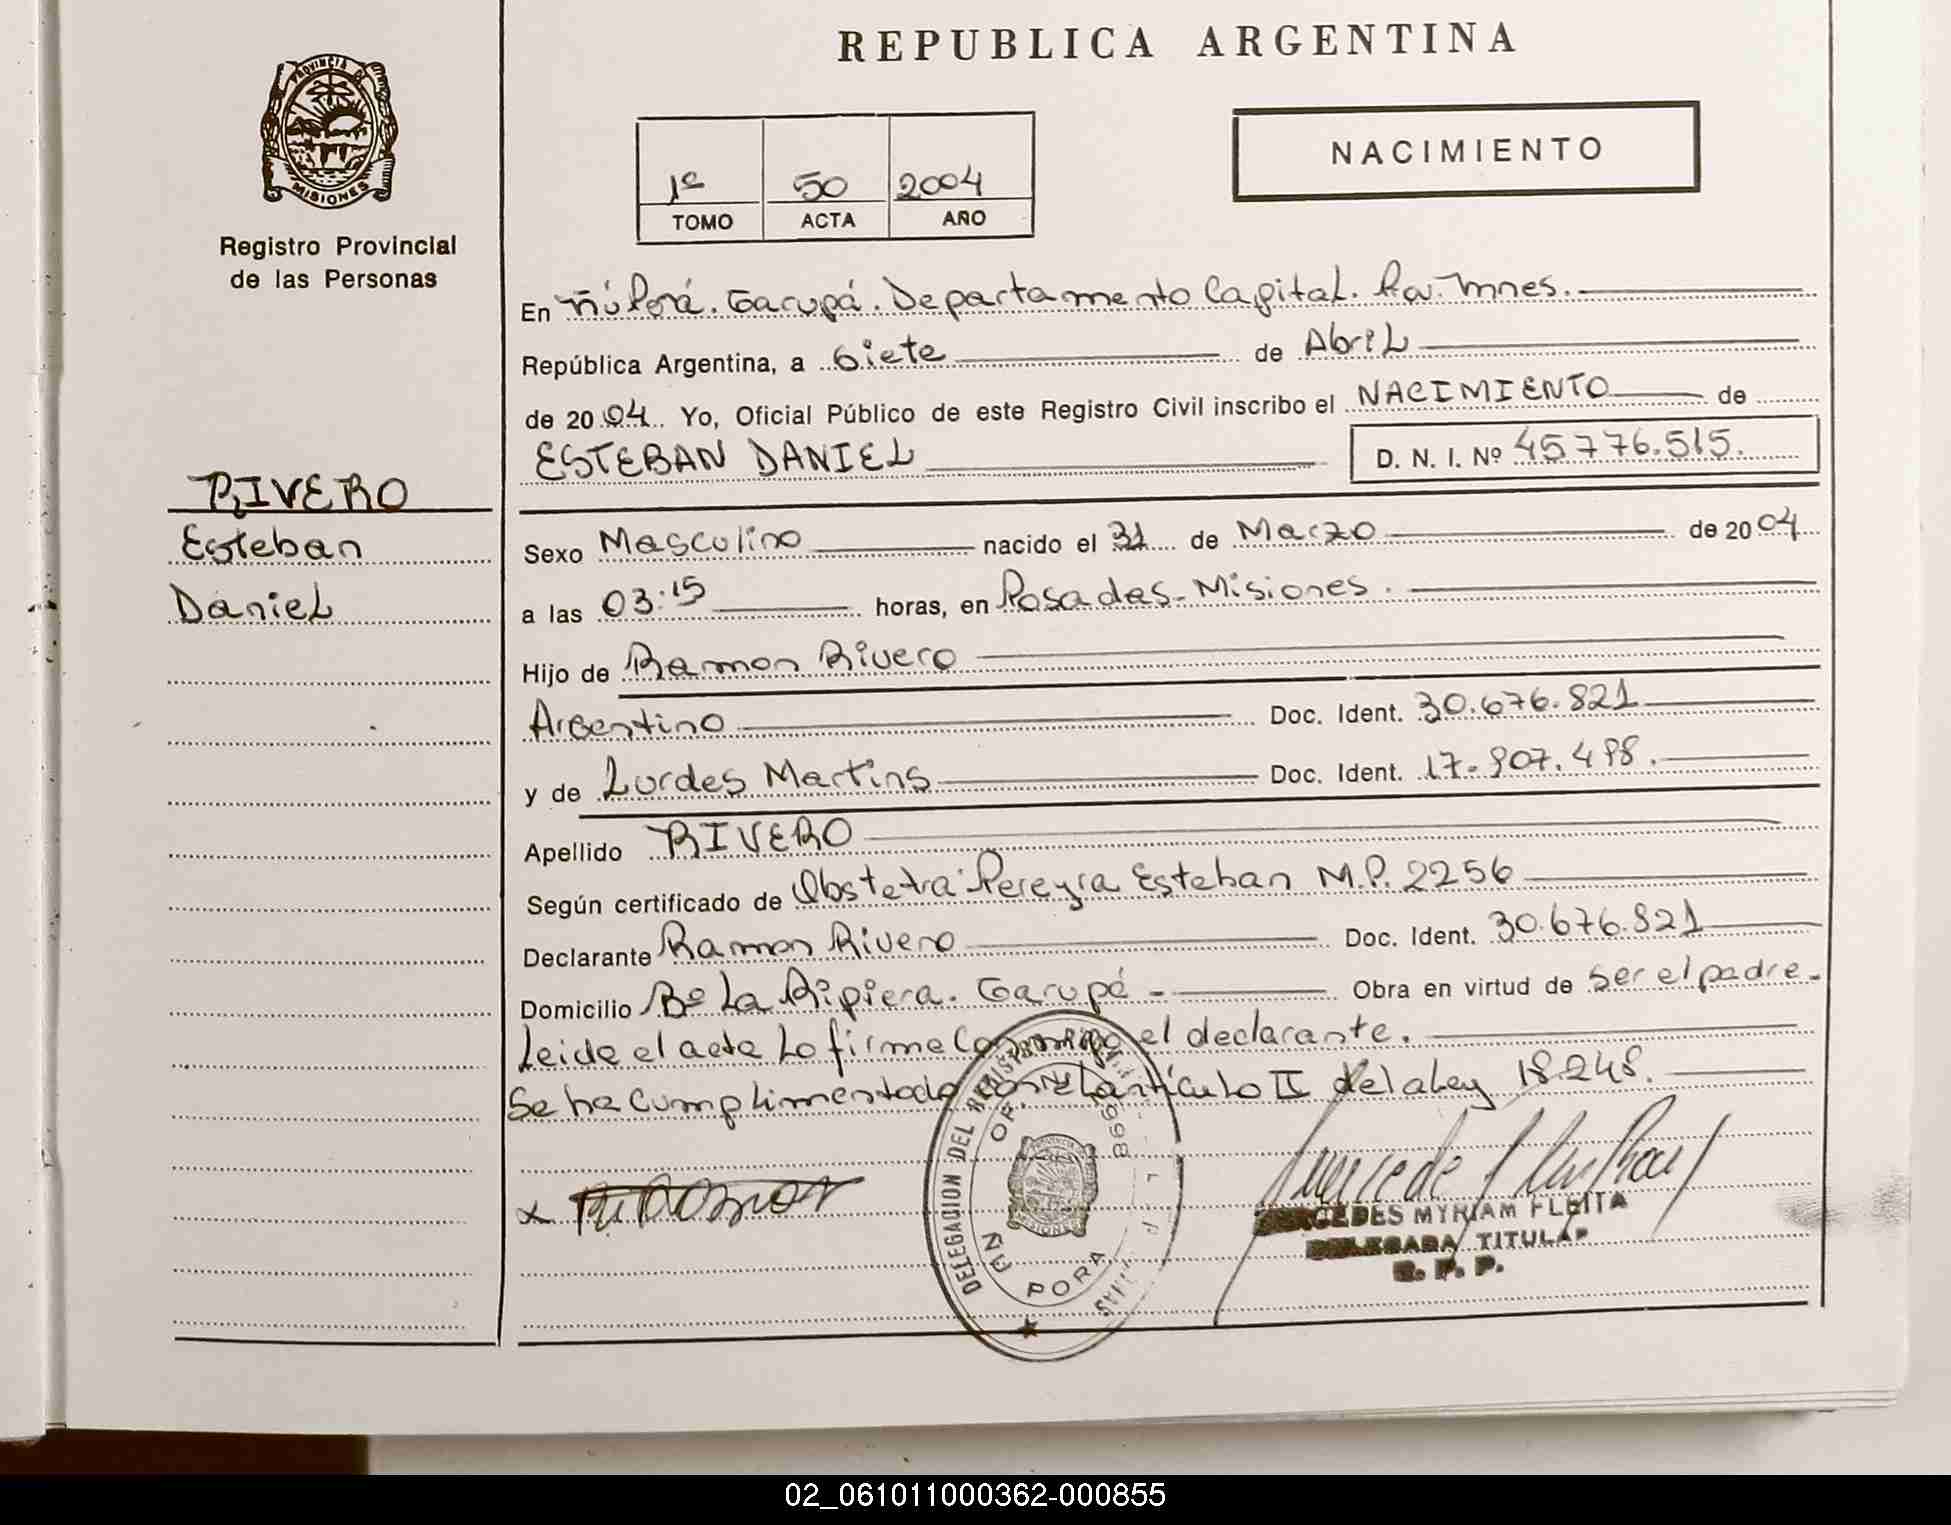 REPUBLICA ARGENTINA
PROVINCIA DE
MISIONES
Registro Provincial
de las Personas
1º 50 2004
TOMO ACTA AÑO
NACIMIENTO
En Ñú Porá. Garupá. Departamento Capital. Pcia. Mnes.
República Argentina, a Siete de Abril
de 2004. Yo, Oficial Público de este Registro Civil inscribo el NACIMIENTO de
ESTEBAN DANIEL D. N. I. Nº 45776.515.
RIVERO
Esteban
Daniel
Sexo Masculino nacido el 31 de Marzo de 2004
a las 03:15 horas, en Posadas-Misiones.
Hijo de Ramon Rivero
Argentino Doc. Ident. 30.676.821
y de Lurdes Martins Doc. Ident. 17.907.498.
Apellido RIVERO
Según certificado de Obstetra Pereyra Esteban M.P. 2256
Declarante Ramon Rivero Doc. Ident. 30.676.821
Domicilio Bº La Ripiera. Garupá - Obra en virtud de ser el padre-
Leida el acta Lo firma Conmigo el declarante.
Se ha Cumplimentado con el articulo II de la Ley 18.248.
DELEGACION DEL
ÑU PORA
MISIONES
MERCEDES MYRIAM FLEITA
DELEGADA TITULAR
R. P. P.
02_061011000362-000855